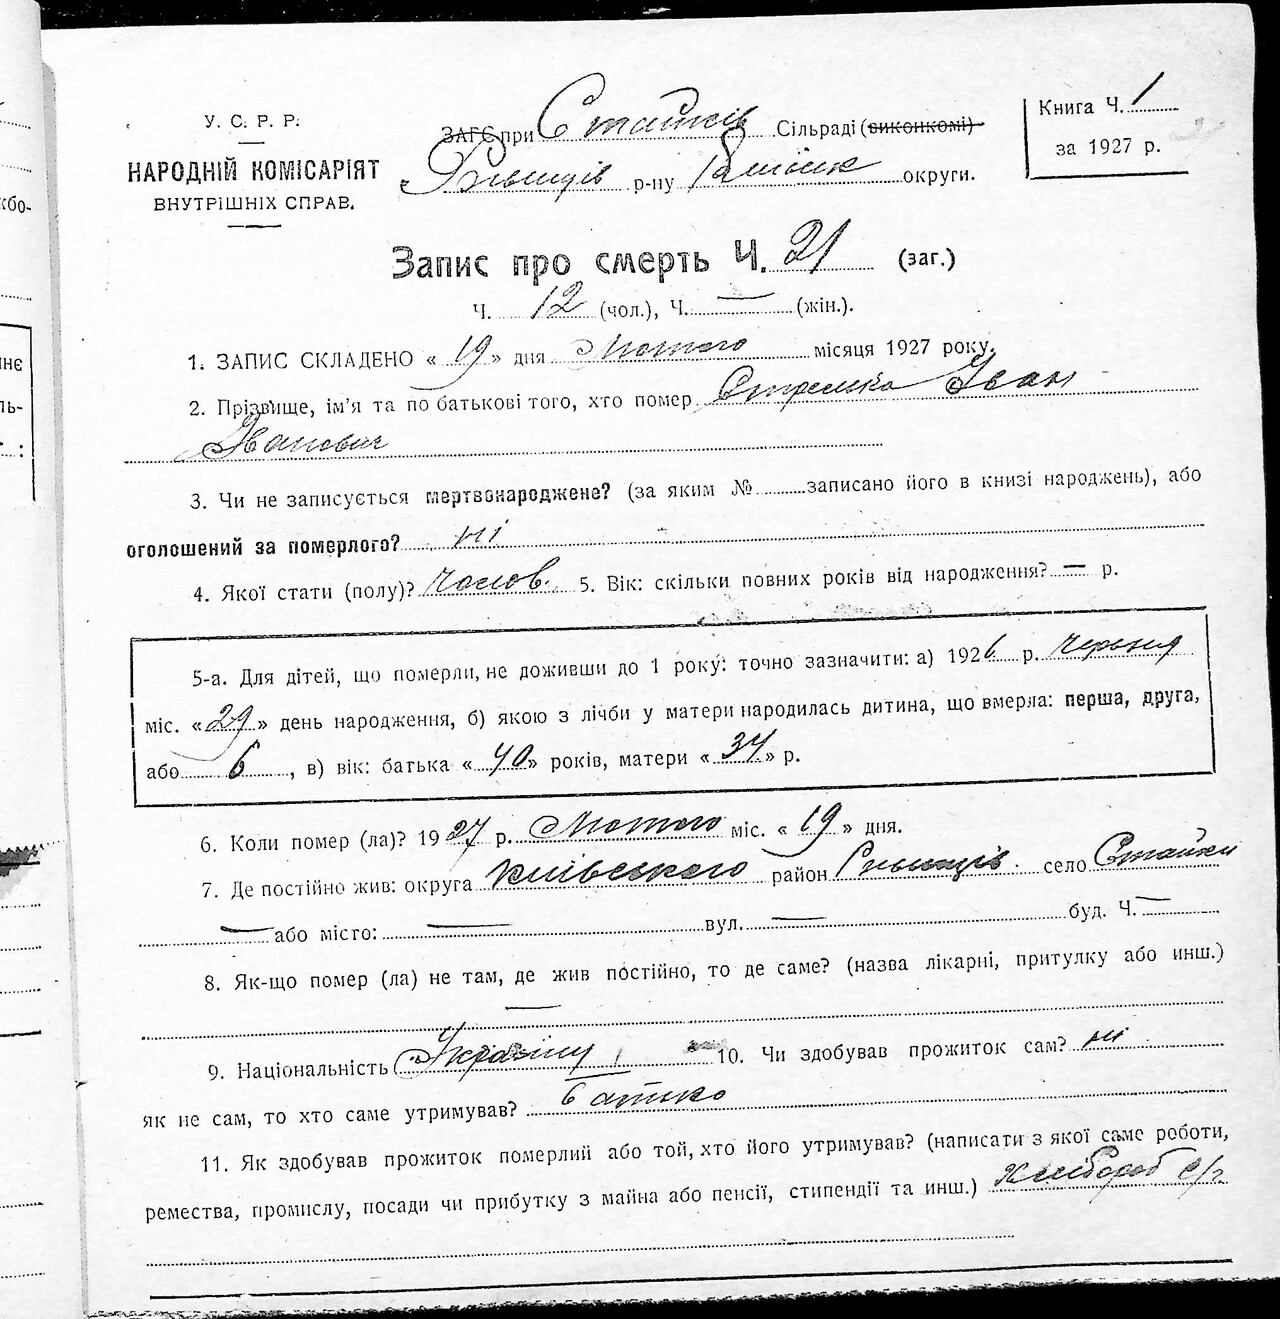 У. С. Р. Р.
НАРОДНІЙ КОМІСАРІЯТ
ВНУТРІШНІХ СПРАВ.
ЗАГС при Стайків Сільраді (виконкомі)
р-ну округи.
Книга Ч. 1
за 1927 р.
Запис про смерть Ч. 21 (заг.)
Ч. 12 (чол.), Ч. — (жін.).
1. ЗАПИС СКЛАДЕНО « 19 » дня Лютого місяця 1927 року.
2. Прізвище, ім'я та по батькові того, хто помер Іван
Іванович
3. Чи не записується мертвонароджене? (за яким № записано його в книзі народжень), або
оголошений за померлого? ні
4. Якої стати (полу)? чолов. 5. Вік: скільки повних років від народження? — р.
5-а. Для дітей, що померли, не доживши до 1 року: точно зазначити: а) 1926 р. червня
міс. « 29 » день народження, б) якою з лічби у матери народилась дитина, що вмерла: перша, друга,
або 6 , в) вік: батька « 40 » років, матери « 34 » р.
6. Коли помер (ла)? 1927 р. Лютого міс. « 19 » дня.
7. Де постійно жив: округа Київського район село Стайки
— або місто: — вул. — буд. Ч. —
8. Як-що помер (ла) не там, де жив постійно, то де саме? (назва лікарні, притулку або инш.)
—
9. Національність 10. Чи здобував прожиток сам? ні
як не сам, то хто саме утримував? батько
11. Як здобував прожиток померлий або той, хто його утримував? (написати з якої саме роботи,
ремества, промислу, посади чи прибутку з майна або пенсії, стипендії та инш.) хлібороб с/г